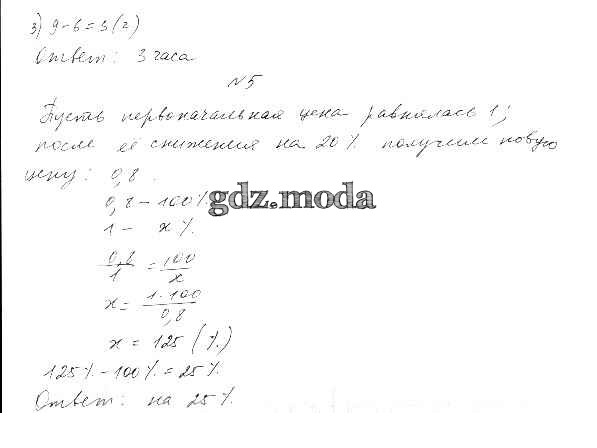 3) 9-6=3(г)
Ответ: 3 часа
№5
Пусть первоначальная цена равнялась 1;
после её снижения на 20% получили новую
цену: 0,8.
0,8 - 100%
gdz.moda
1 - x%
0,8/1 = 100/x
x = 1·100/0,8
x = 125 (%)
125% - 100% = 25%
Ответ: на 25%.